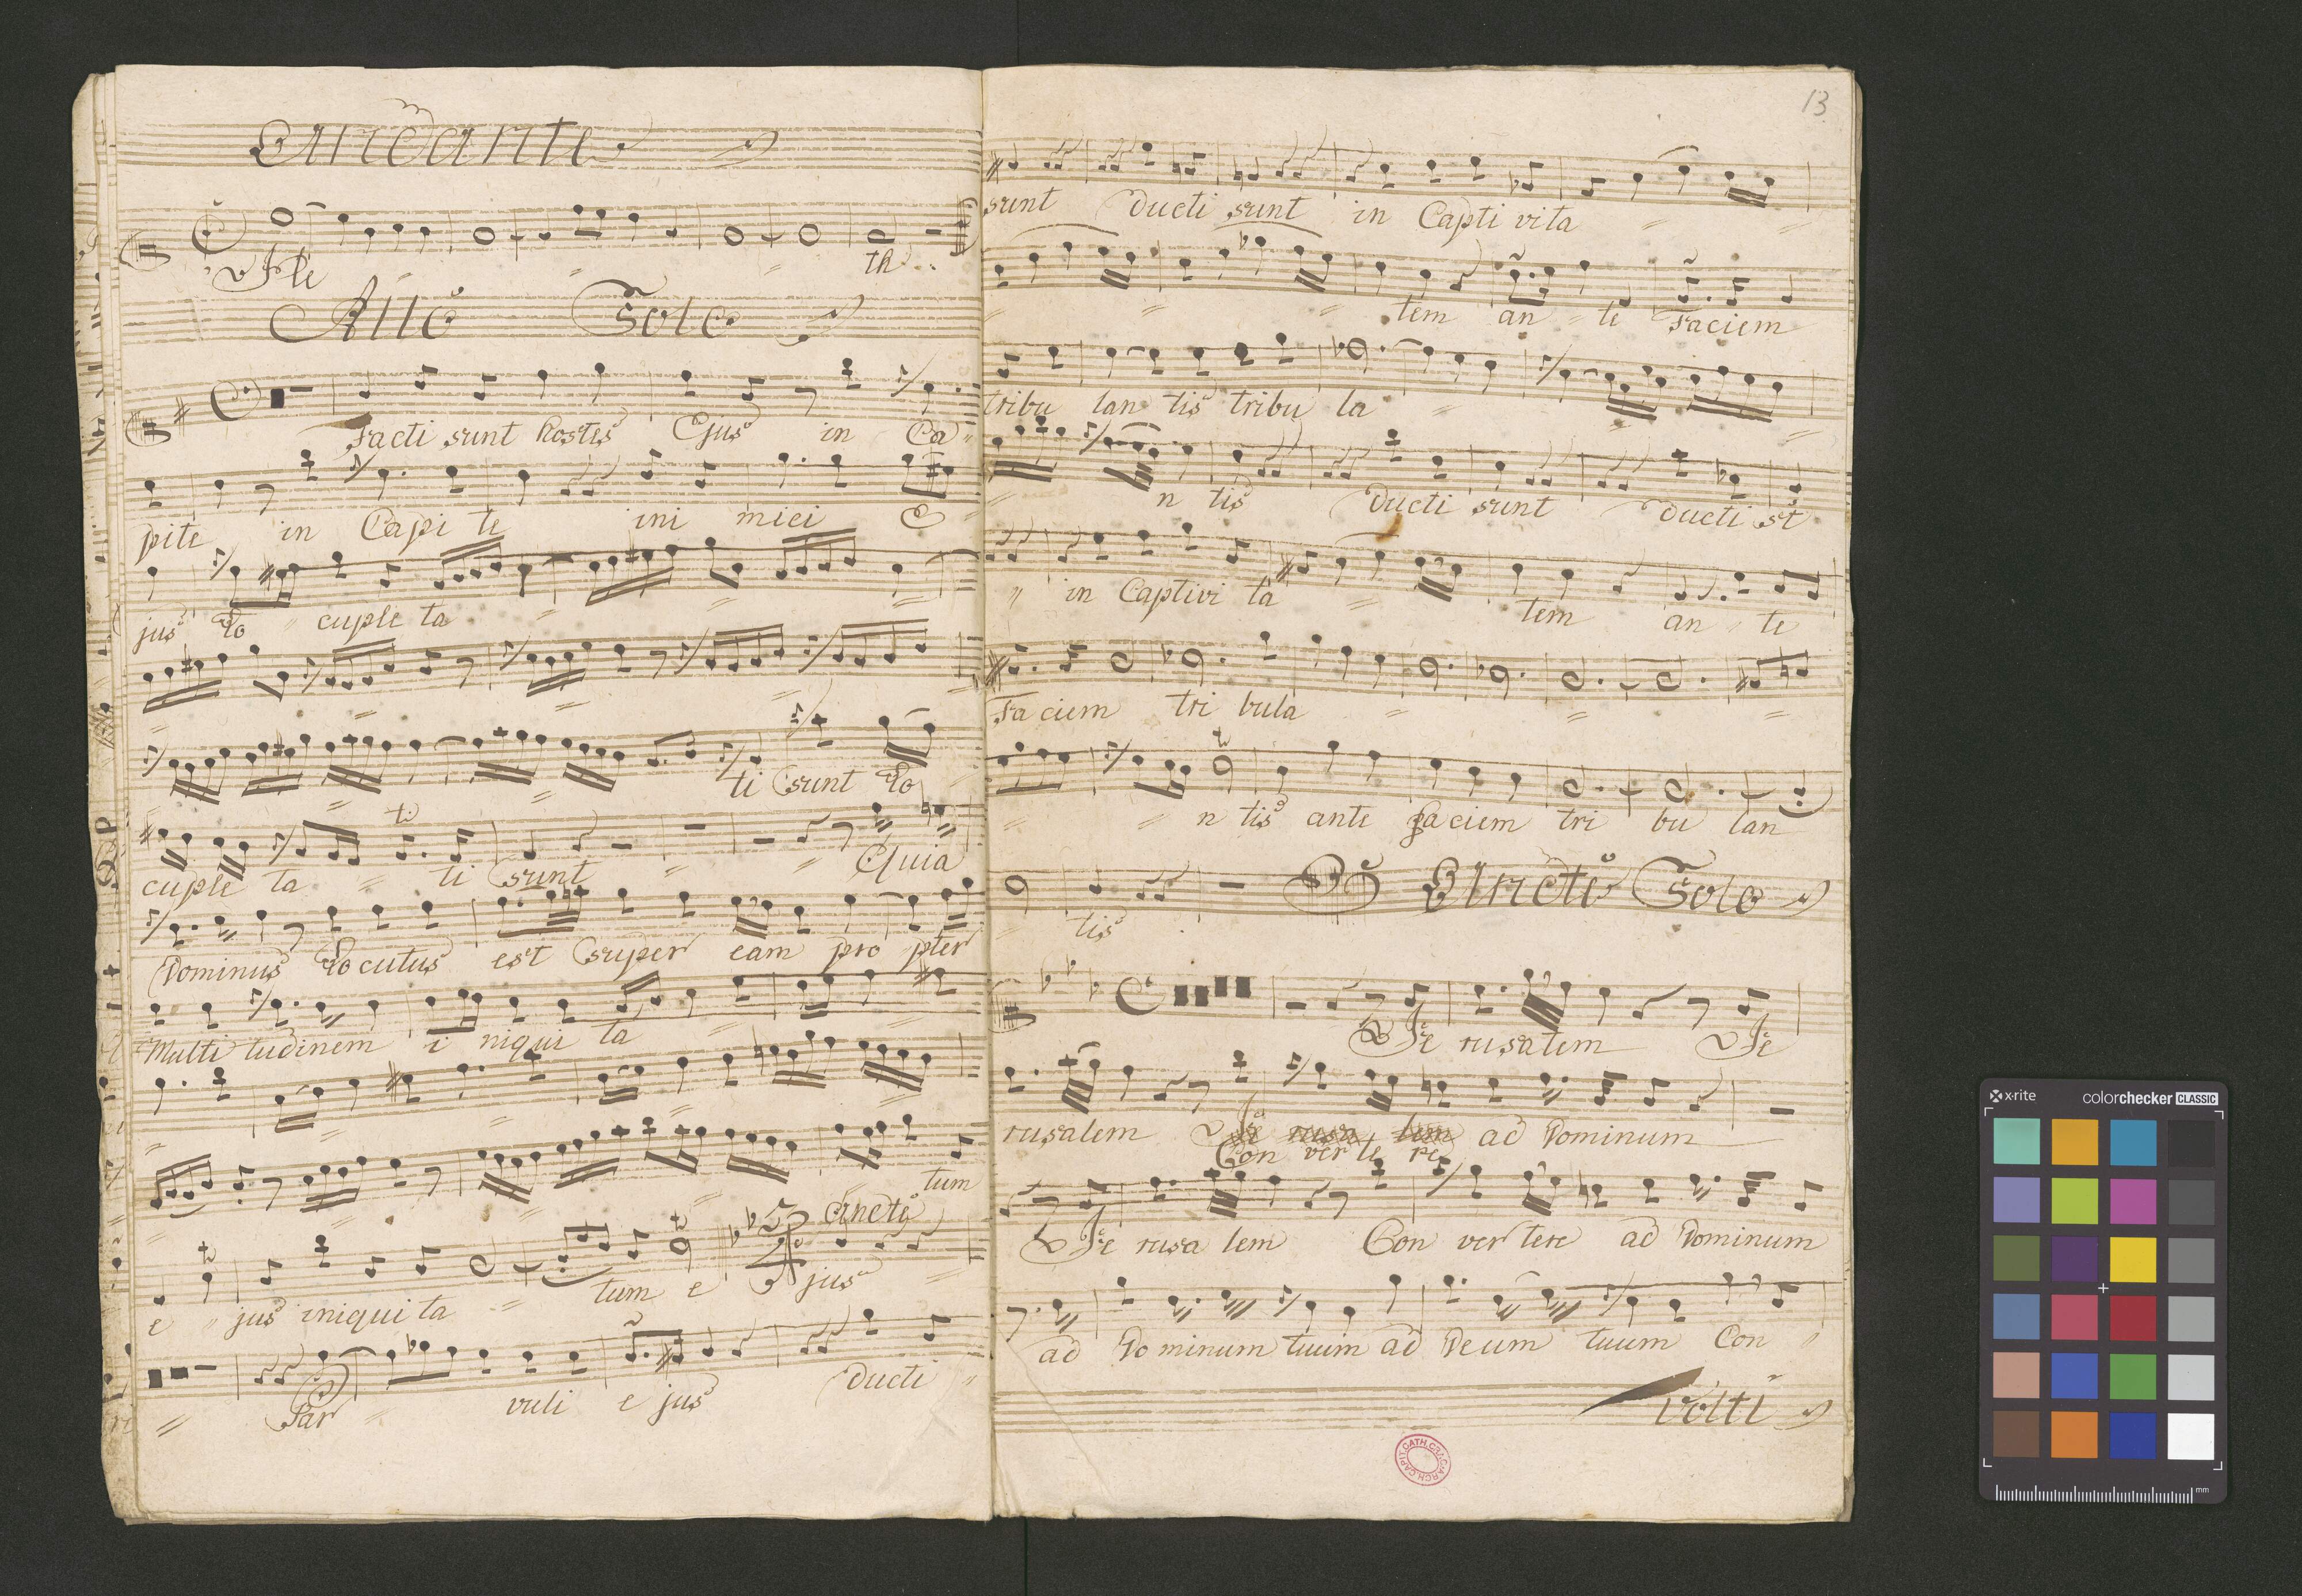 Andante
He = = = th
Allo Solo
Facti sunt hostes Ejus in Ca=
pite in Capi te ini mici E =
jus Lo = cuple ta = = =
= = = =
= = = ti sunt Lo =
ti
cuple ta = ti sunt = = Quia
Dominus Locutus est super eam pro pter
Multi tudinem i niqui ta = =
= = =
= = = tum
Andte
e = jus iniqui ta = tum e jus =
= Par = vuli e jus Ducti =
13
sunt Ducti sunt in Capti vita = =
= = = tem an = te Faciem
tribu lan tis tribu la = = =
= n tis Ducti sunt Ducti st
= in Captivi ta = tem an = te
Faciem tri bula = = =
= = n tis ante Faciem tri bu lan
= tis Andte Solo
Je rusalem Je
rusalem Je rusa lem ad Dominum
Con ver te re
Je rusa lem Con ver tere ad Dominum
ad Do minum tuum ad Deum tuum Con =
Volti
CAPIT. CATH. CRAC. ARCH.
x-rite colorchecker CLASSIC
mm